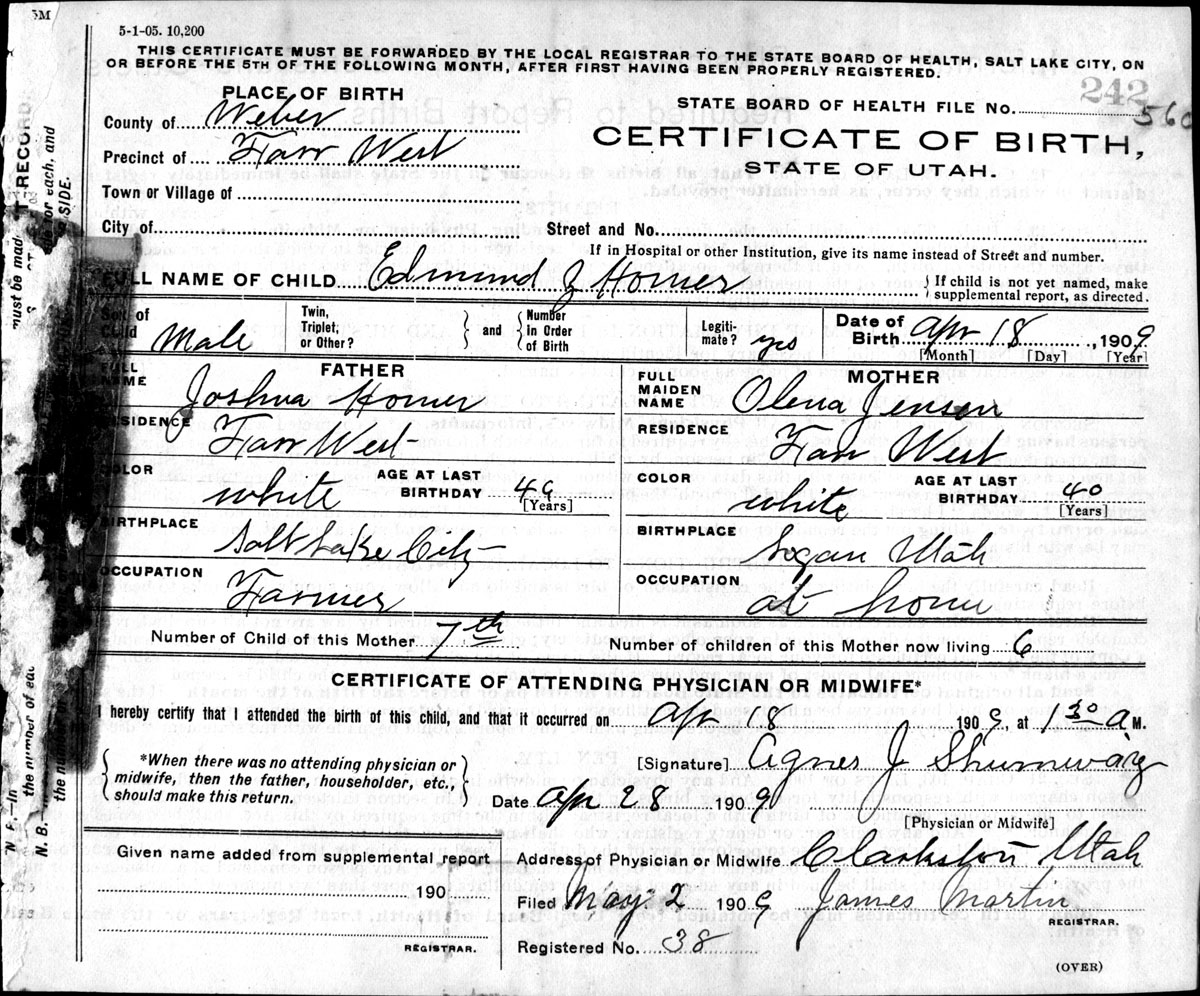 5M
5-1-05. 10,200
THIS CERTIFICATE MUST BE FORWARDED BY THE LOCAL REGISTRAR TO THE STATE BOARD OF HEALTH, SALT LAKE CITY, ON
OR BEFORE THE 5TH OF THE FOLLOWING MONTH, AFTER FIRST HAVING BEEN PROPERLY REGISTERED.
PLACE OF BIRTH
County of Weber
Precinct of Farr West
Town or Village of
City of
242
STATE BOARD OF HEALTH FILE NO. 560
CERTIFICATE OF BIRTH,
STATE OF UTAH.
Street and No.
If in Hospital or other Institution, give its name instead of Street and number.
FULL NAME OF CHILD Edmund J Homer
If child is not yet named, make
supplemental report, as directed.
Sex of
Child Male
Twin,
Triplet,
or Other?
and
Number
in Order
of Birth
Legiti-
mate? yes
Date of
Birth Apr 18, 1909
[Month] [Day] [Year]
FATHER
FULL
NAME Joshua Homer
RESIDENCE Farr West
COLOR white
AGE AT LAST
BIRTHDAY 49
[Years]
BIRTHPLACE Salt Lake City
OCCUPATION Farmer
MOTHER
FULL
MAIDEN
NAME Olena Jensen
RESIDENCE Farr West
COLOR white
AGE AT LAST
BIRTHDAY 40
[Years]
BIRTHPLACE Logan Utah
OCCUPATION at home
Number of Child of this Mother 7th
Number of children of this Mother now living 6
CERTIFICATE OF ATTENDING PHYSICIAN OR MIDWIFE*
I hereby certify that I attended the birth of this child, and that it occurred on Apr 18 1909, at 1 30 a M.
*When there was no attending physician or
midwife, then the father, householder, etc.,
should make this return.
[Signature] Agnes J. Shumway
Date Apr 28 1909
[Physician or Midwife]
Given name added from supplemental report
190
REGISTRAR.
Address of Physician or Midwife Clarkston Utah
Filed May. 2 1909 James Martin
REGISTRAR.
Registered No. 38
(OVER)